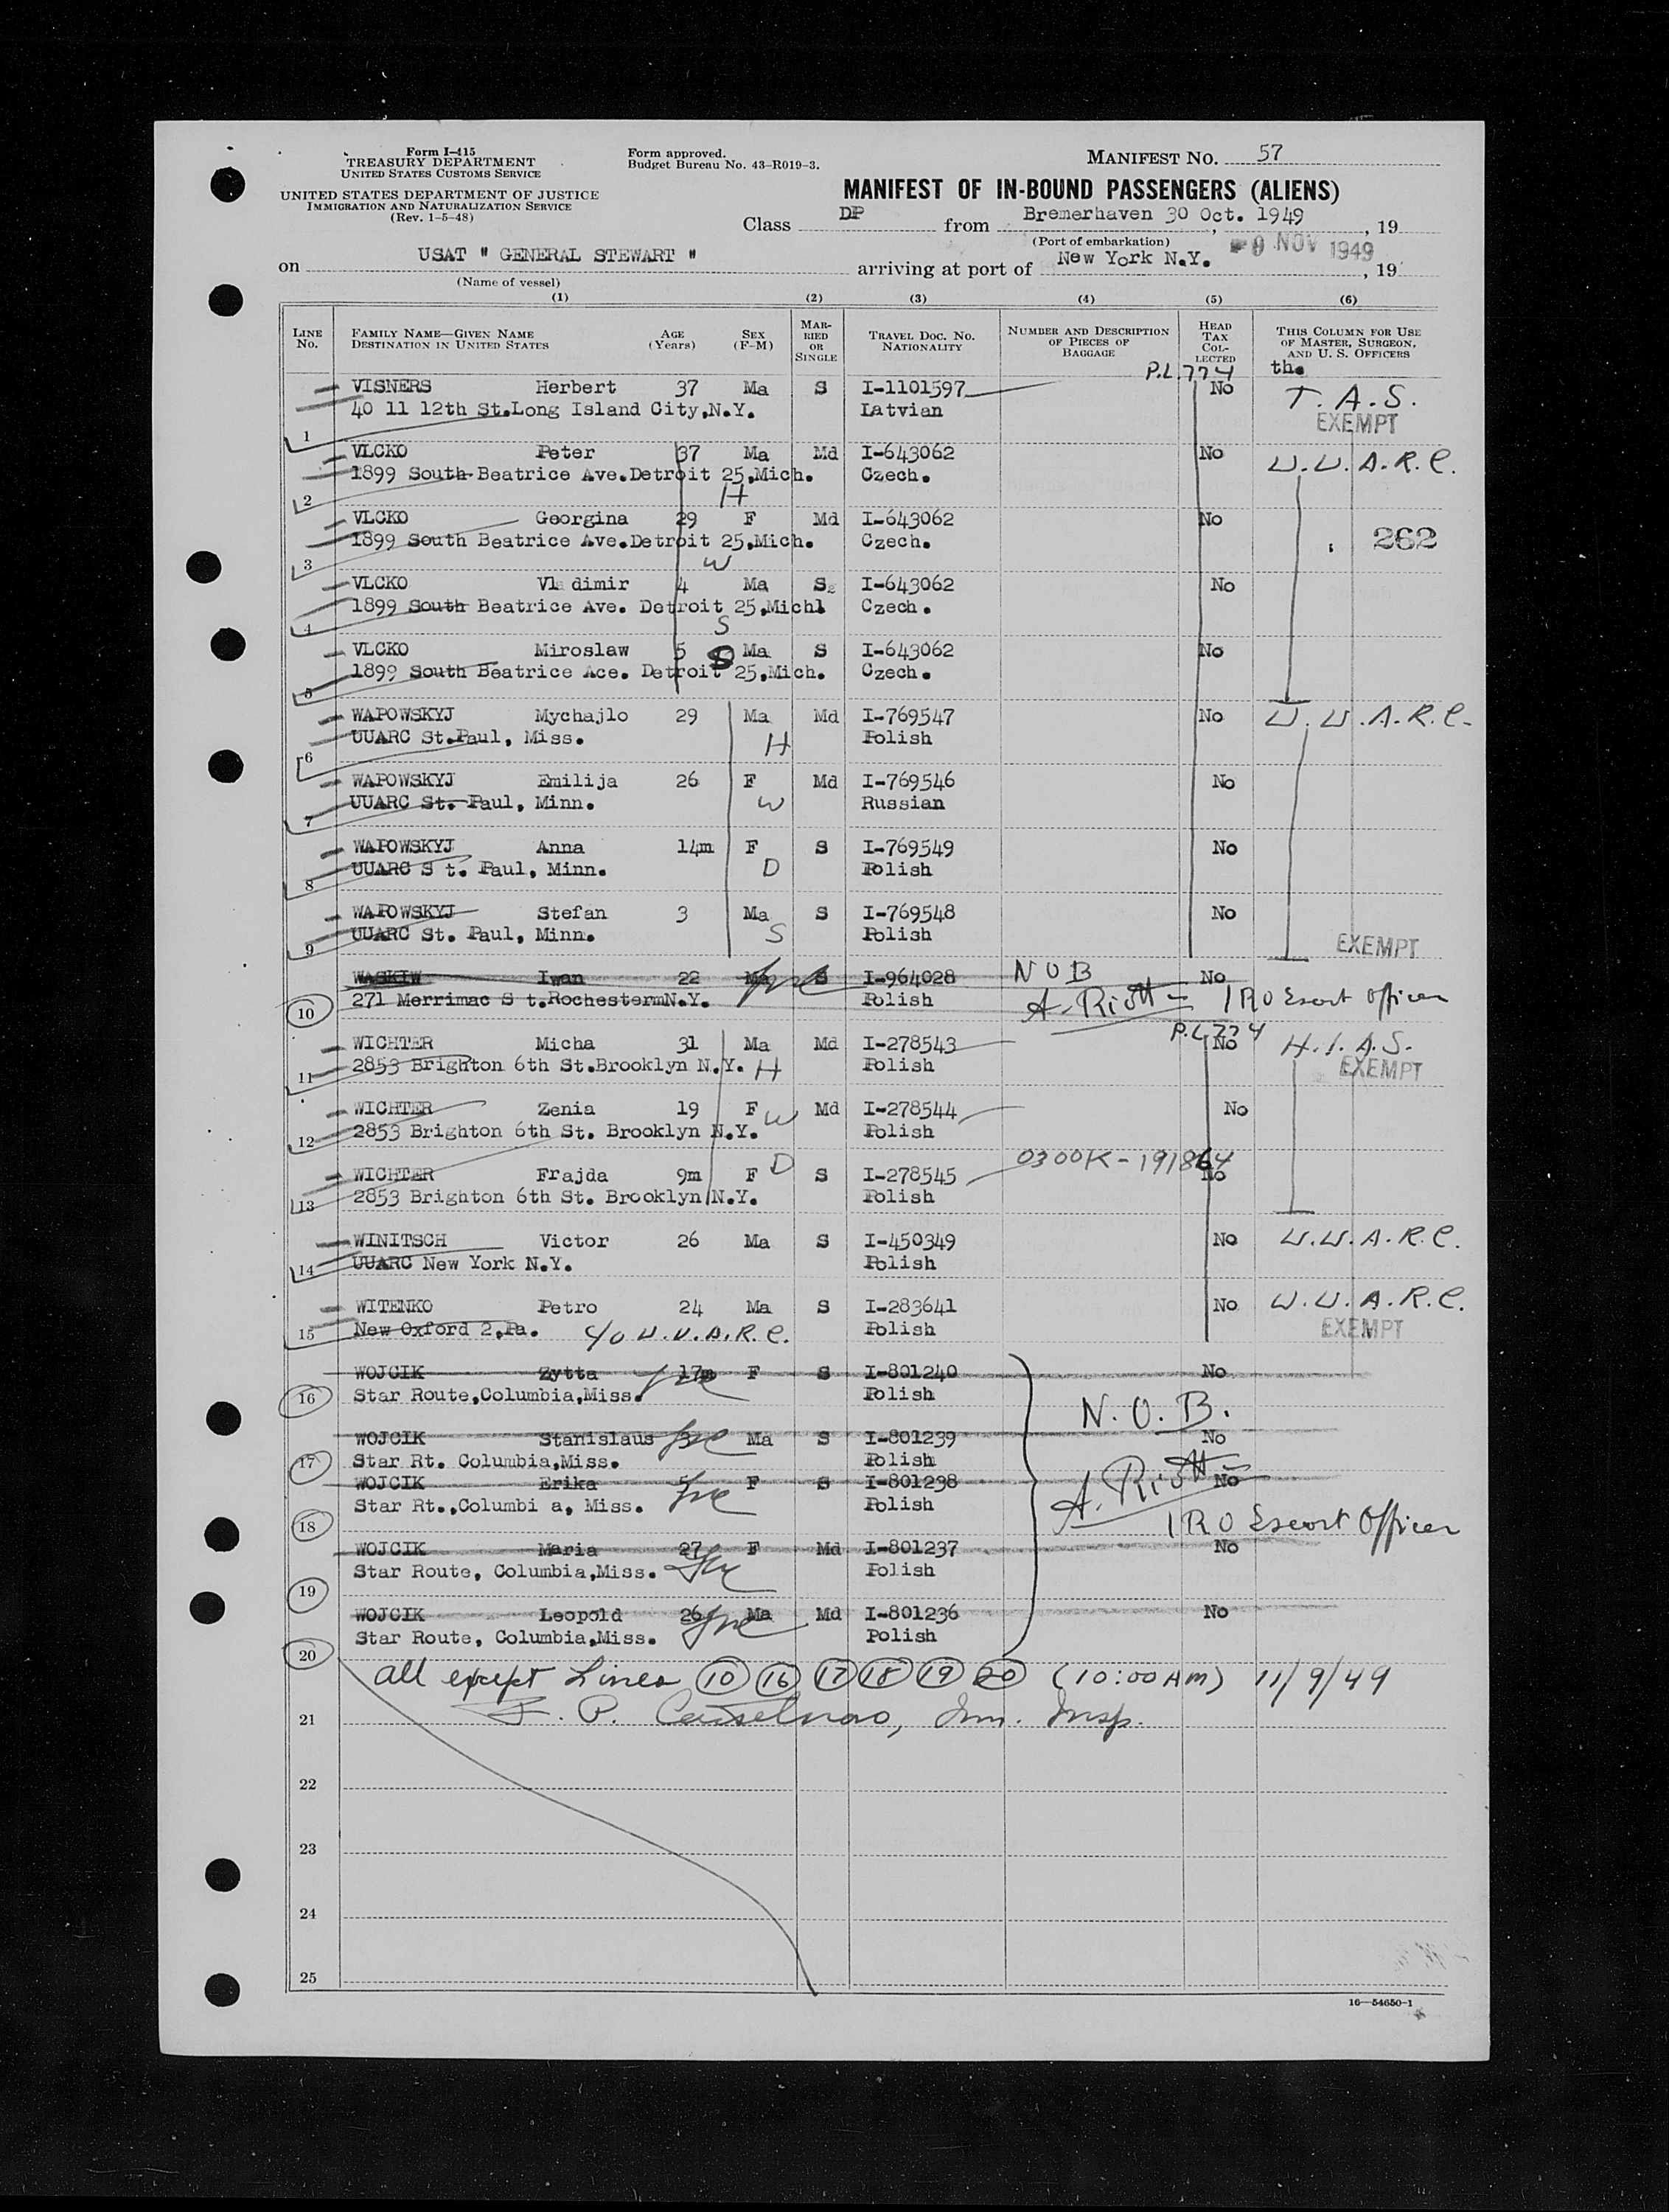 Form I-415
TREASURY DEPARTMENT
UNITED STATES CUSTOMS SERVICE
UNITED STATES DEPARTMENT OF JUSTICE
IMMIGRATION AND NATURALIZATION SERVICE
(Rev. 1-5-48)
Form approved.
Budget Bureau No. 43-R019-3.
MANIFEST NO. 57
MANIFEST OF IN-BOUND PASSENGERS (ALIENS)
Class DP from Bremerhaven 30 Oct. 1949, 19
(Port of embarkation)
on USAT " GENERAL STEWART " arriving at port of New York N.Y. 9 NOV 1949, 19
(Name of vessel)
(1) (2) (3) (4) (5) (6)
LINE No. FAMILY NAME—GIVEN NAME DESTINATION IN UNITED STATES AGE (Years) SEX (F-M) MARRIED OR SINGLE TRAVEL DOC. NO. NATIONALITY NUMBER AND DESCRIPTION OF PIECES OF BAGGAGE HEAD TAX COLLECTED THIS COLUMN FOR USE OF MASTER, SURGEON, AND U. S. OFFICERS
P.L.774 the
VISNERS Herbert 37 Ma S I-1101597 No T. A. S.
1 40 11 12th St.Long Island City,N.Y. Latvian EXEMPT
VLCKO Peter 37 Ma Md I-643062 No U.U.A.R.C.
2 1899 South Beatrice Ave.Detroit 25,Mich. Czech.
H
VLCKO Georgina 29 F Md I-643062 No
3 1899 South Beatrice Ave.Detroit 25,Mich. Czech. 262
W
VLCKO Vladimir 4 Ma S I-643062 No
4 1899 South Beatrice Ave. Detroit 25,Michl Czech.
S
VLCKO Miroslaw 5 S Ma S I-643062 No
5 1899 South Beatrice Ace. Detroit 25,Mich. Czech.
WAPOWSKYJ Mychajlo 29 Ma Md I-769547 No U.U.A.R.C.
6 UUARC St.Paul, Miss. H Polish
WAPOWSKYJ Emilija 26 F Md I-769546 No
7 UUARC St. Paul, Minn. W Russian
WAPOWSKYJ Anna 14m F S I-769549 No
8 UUARC S t. Paul, Minn. D Polish
WAPOWSKYJ Stefan 3 Ma S I-769548 No
9 UUARC St. Paul, Minn. S Polish EXEMPT
WASKIW Iwan 22 Ma S I-964028 NOB No
10 271 Merrimac S t.RochestermN.Y. Polish A. Riott IRO Escort Officer
P.L.774
WICHTER Micha 31 Ma Md I-278543 No H.I.A.S.
11 2853 Brighton 6th St.Brooklyn N.Y. H Polish EXEMPT
WICHTER Zenia 19 F W Md I-278544 No
12 2853 Brighton 6th St. Brooklyn N.Y. Polish
WICHTER Frajda 9m F D S I-278545 0300K-191864 No
13 2853 Brighton 6th St. Brooklyn N.Y. Polish
WINITSCH Victor 26 Ma S I-450349 No U.U.A.R.C.
14 UUARC New York N.Y. Polish
WITENKO Petro 24 Ma S I-283641 No U.U.A.R.C.
15 New Oxford 2,Pa. c/o U.U.A.R.C. Polish EXEMPT
WOJCIK Zytta 17m F S I-801240 No
16 Star Route,Columbia,Miss. Polish N.O.B.
WOJCIK Stanislaus 3 Ma S I-801239 No
17 Star Rt. Columbia,Miss. Polish
WOJCIK Erika 5 F S I-801298 No
18 Star Rt.,Columbi a, Miss. Polish A. Riott IRO Escort Officer
WOJCIK Maria 27 F Md I-801237 No
19 Star Route, Columbia,Miss. Polish
WOJCIK Leopold 26 Ma Md I-801236 No
20 Star Route, Columbia,Miss. Polish
all except Lines 10 16 17 18 19 20 (10:00AM) 11/9/49
21 F. P. Imm. Insp.
22
23
24
25
16—54650-1